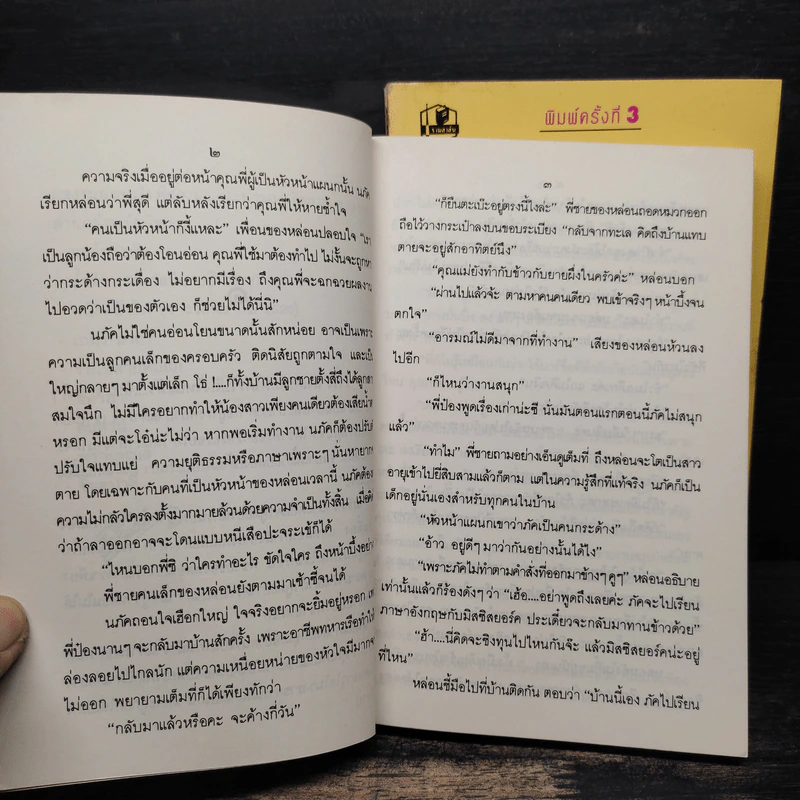 พิมพ์ครั้งที่ 3
๒
ความจริงเมื่ออยู่ต่อหน้าคุณพี่ผู้เป็นหัวหน้าแผนกนั้น นภัค
เรียกหล่อนว่าพี่สุดี แต่ลับหลังเรียกว่าคุณพี่ให้หายช้ำใจ
“คนเป็นหัวหน้าก็งี้แหละ” เพื่อนของหล่อนปลอบใจ “เรา
เป็นลูกน้องถือว่าต้องโอนอ่อน คุณพี่ใช้มาต้องทำไป ไม่งั้นจะถูกหา
ว่ากระด้างกระเดื่อง ไม่อยากมีเรื่อง ถึงคุณพี่จะฉกฉวยผลงาน
ไปอวดว่าเป็นของตัวเอง ก็ช่วยไม่ได้นี่นิ”
นภัคไม่ใช่คนอ่อนโยนขนาดนั้นสักหน่อย อาจเป็นเพราะ
ความเป็นลูกคนเล็กของครอบครัว ติดนิสัยถูกตามใจ และเป็น
ใหญ่กลายๆ มาตั้งแต่เล็ก โธ่ !....ก็ทั้งบ้านมีลูกชายตั้งสี่ถึงได้ลูกสาว
สมใจนึก ไม่มีใครอยากทำให้น้องสาวเพียงคนเดียวต้องเสียน้ำตา
หรอก มีแต่จะโอ๋น่ะไม่ว่า หากพอเริ่มทำงาน นภัคก็ต้องปรับตัว
ปรับใจแทบแย่ ความยุติธรรมหรือภาษาเพราะๆ นั้นหายาก
ตาย โดยเฉพาะกับคนที่เป็นหัวหน้าของหล่อนเวลานี้ นภัคต้อง
ความไม่กลัวใครลงตั้งมากมายล้วนด้วยความจำเป็นทั้งสิ้น เมื่อคิด
ว่าถ้าลาออกอาจจะโดนแบบหนีเสือปะจระเข้ก็ได้
“ไหนบอกพี่ซิ ว่าใครทำอะไร ขัดใจใคร ถึงหน้าบึ้งอย่าง
พี่ชายคนเล็กของหล่อนยังตามมาเซ้าซี้จนได้
นภัคถอนใจเฮือกใหญ่ ใจจริงอยากจะยิ้มอยู่หรอก
พี่ป๋องนานๆ จะกลับมาบ้านสักครั้ง เพราะอาชีพทหารเรือทำให้
ล่องลอยไปไกลนัก แต่ความเหนื่อยหน่ายของหัวใจมีมากจน
ไม่ออก พยายามเต็มที่ก็ได้เพียงทักว่า
“กลับมาแล้วหรือคะ จะค้างกี่วัน”
๓
“ก็ยืนตะเบ๊ะอยู่ตรงนี้ไงล่ะ” พี่ชายของหล่อนถอดหมวกออก
ถือไว้วางกระเป๋าลงบนขอบระเบียง “กลับจากทะเล คิดถึงบ้านแทบ
ตายจะอยู่สักอาทิตย์นึง”
“คุณแม่ยังทำกับข้าวกับยายผึ้งในครัวค่ะ” หล่อนบอก
“ผ่านไปแล้วจ้ะ ตามหาคนคนเดียว พบเข้าจริงๆ หน้าบึ้งจน
ตกใจ”
“อารมณ์ไม่ดีมาจากที่ทำงาน” เสียงของหล่อนห้วนลง
ไปอีก
“ก็ไหนว่างานสนุก”
“พี่ป๋องพูดเรื่องเก่าน่ะซี นั่นมันตอนแรกตอนนี้ภัคไม่สนุก
แล้ว”
“ทำไม” พี่ชายถามอย่างเอ็นดูเต็มที่ ถึงหล่อนจะโตเป็นสาว
อายุเข้าไปยี่สิบสามแล้วก็ตาม แต่ในความรู้สึกที่แท้จริง นภัคก็เป็น
เด็กอยู่นั่นเองสำหรับทุกคนในบ้าน
“หัวหน้าแผนกเขาว่าภัคเป็นคนกระด้าง”
“อ้าว อยู่ดีๆ มาว่ากันอย่างนั้นได้ไง”
“เพราะภัคไม่ทำตามคำสั่งที่ออกมาข้างๆ คูๆ” หล่อนอธิบาย
เท่านั้นแล้วก็ร้องดังๆ ว่า “เฮ้อ....อย่าพูดถึงเลยค่ะ ภัคจะไปเรียน
ภาษาอังกฤษกับมิสซิสยอร์ค ประเดี๋ยวจะกลับมาทานข้าวด้วย”
“ฮ้า....นี่คิดจะชิงทุนไปไหนกันจ๊ะ แล้วมิสซิสยอร์คน่ะอยู่
ที่ไหน”
หล่อนชี้มือไปที่บ้านติดกัน ตอบว่า “บ้านนี้เอง ภัคไปเรียน